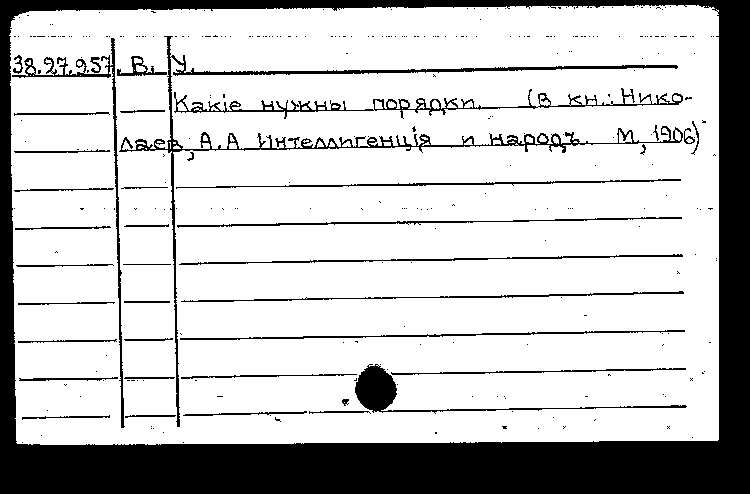 38.27.957. В. У.
Какіе нужны порядки. (в кн.: Нико-
лаев, А.А Интеллигенція и народъ. М, 1906)